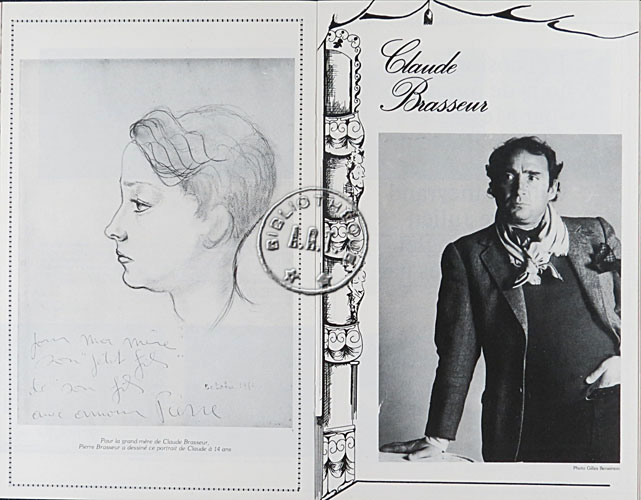 pour ma mère
"son petit fils"
de son fils
avec amour Pierre
Pour la grand-mère de Claude Brasseur,
Pierre Brasseur a dessiné ce portrait de Claude à 14 ans
BIBLIOTHE
A.R.T.
Claude
Brasseur